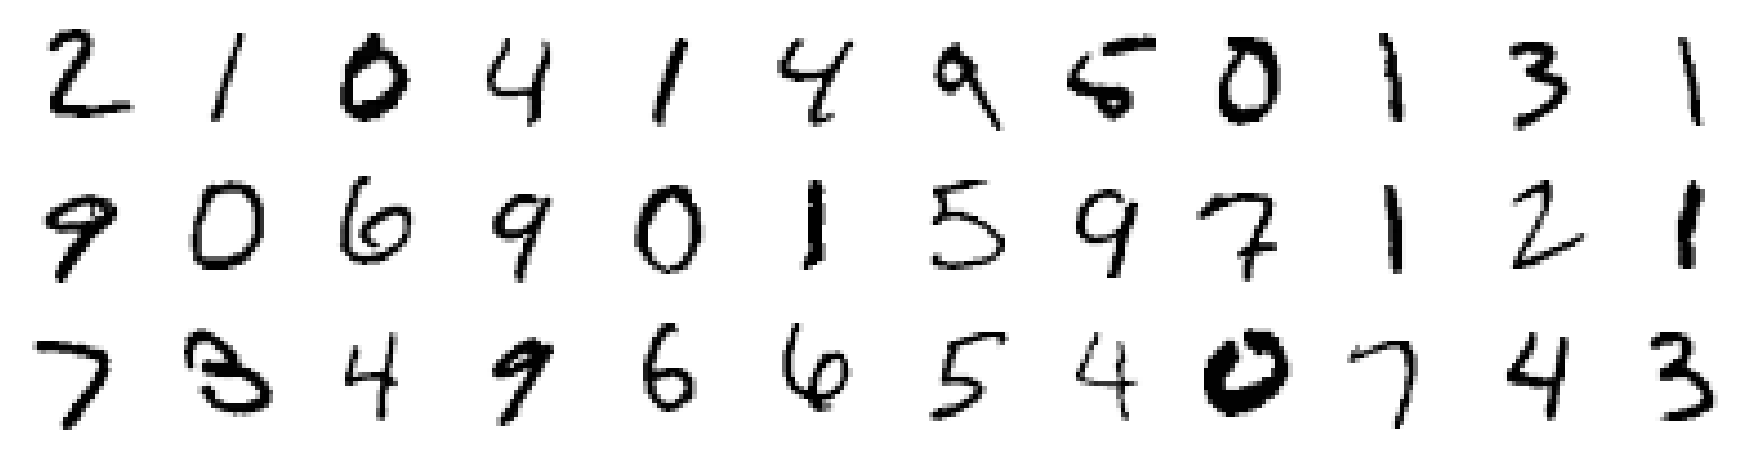 2 1 0 4 1 4 9 5 0 1 3 1
9 0 6 9 0 1 5 9 7 1 2 1
7 3 4 9 6 6 5 4 0 7 4 3